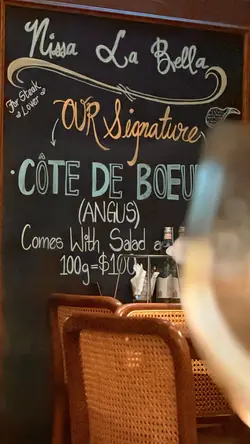 Nissa La Bella
For Steak
Lover
OUR Signature
CÔTE DE BOEU
(ANGUS)
Comes With Salad a
100g=$10